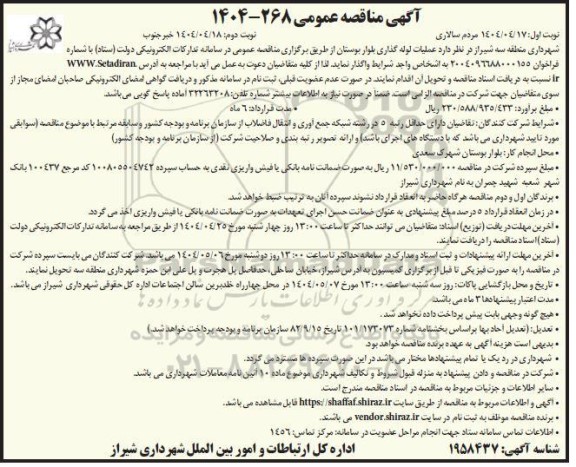 آگهی مناقصه عمومی ۲۶۸-۱۴۰۴
نوبت اول: ۱۴۰۴/۰۴/۱۷ مردم سالاری نوبت دوم: ۱۴۰۴/۰۴/۱۸ خبر جنوب
شهرداری منطقه سه شیراز در نظر دارد عملیات لوله گذاری بلوار بوستان از طریق برگزاری مناقصه عمومی در سامانه تدارکات الکترونیکی دولت (ستاد) با شماره
فراخوان ۲۰۰۴۰۹۶۶۸۸۰۰۰۱۵۵ به اشخاص واجد شرایط واگذار نمایند، لذا از کلیه متقاضیان دعوت به عمل می آید با مراجعه به آدرس WWW.Setadiran.
ir نسبت به دریافت اسناد مناقصه و تحویل آن اقدام نمایند. در صورت عدم عضویت قبلی، ثبت نام در سامانه مذکور و دریافت گواهی امضای الکترونیکی صاحبان امضای مجاز از
سوی متقاضیان جهت شرکت در مناقصه الزامی است. ضمناً در صورت نیاز به اطلاعات بیشتر شماره تلفن: ۳۲۲۶۳۲۰۸ آماده پاسخ گویی می باشد.
• مبلغ برآورد: ۲۳۰/۵۸۸/۹۳۵/۴۳۳ ریال • مدت قرارداد: ۶ ماه
• شرایط شرکت کنندگان: تقاضیان دارای حداقل رتبه ۵ در رشته شبکه جمع آوری و انتقال فاضلاب از سازمان برنامه و بودجه کشور و سابقه مرتبط با موضوع مناقصه (سوابقی
مورد تایید شهرداری می باشد که با دستگاه های اجرای باشد) و ارائه تصویر رتبه بندی و صلاحیت شرکت (از سازمان برنامه و بودجه کشور)
• محل انجام کار: بلوار بوستان شهرک سعدی
• مبلغ سپرده شرکت در مناقصه ۱۱/۵۳۰/۰۰۰/۰۰۰ ریال به صورت ضمانت نامه بانکی یا فیش واریزی نقدی به حساب سپرده ۱۰۰۸۰۵۵۰۴۷۴۲ کد مرجع ۱۰۰۴۳۷ بانک
شهر شعبه شهید چمران به نام شهرداری شیراز
• برندگان اول و دوم مناقصه هرگاه حاضر به انعقاد قرارداد نشوند سپرده آنان به ترتیب ضبط خواهد شد.
• در زمان انعقاد قرارداد ۵ درصد مبلغ پیشنهادی به عنوان ضمانت حسن اجرای تعهدات به صورت ضمانت نامه بانکی یا فیش واریزی اخذ می گردد.
• آخرین مهلت دریافت (توزیع) اسناد: متقاضیان می توانند حداکثر تا ساعت ۱۳:۰۰ روز چهار شنبه مورخ ۱۴۰۴/۰۴/۲۵ از طریق مراجعه به سامانه تدارکات الکترونیکی دولت
(ستاد) اسناد مناقصه را دریافت نمایند.
• آخرین مهلت ارائه پیشنهادات و ثبت اسناد و مدارک در سامانه حداکثر تا ساعت ۱۳:۰۰ روز دوشنبه مورخ ۱۴۰۴/۰۵/۰۶ می باشد. شرکت کنندگان می بایست سپرده شرکت
در مناقصه را به صورت فیزیکی تا قبل از برگزاری کمیسیون به آدرس شیراز، خیابان ساحلی، حدفاصل پل هجرت و پل علی ابن حمزه شهرداری منطقه سه تحویل نمایند.
• تاریخ و محل بازگشایی پاکات: روز سه شنبه ساعت ۱۳:۰۰ مورخ ۱۴۰۴/۰۵/۰۷ در محل چهارراه خلدبرین سالن اجتماعات اداره کل حقوقی شهرداری شیراز می باشد.
• مدت اعتبار پیشنهادها ۳ ماه می باشد.
• هیچ گونه وجهی بابت پیش پرداخت داده نخواهد شد.
• تعدیل: (تعدیل آحاد بها براساس بخشنامه شماره ۱۰۱/۱۷۳۰۷۳ تاریخ ۸۲/۹/۱۵ سازمان برنامه و بودجه پرداخت خواهد شد.)
• بدیهی است هزینه آگهی به عهده برنده مناقصه خواهد بود.
• شهرداری در رد یک یا تمام پیشنهادها مختار می باشد در این صورت سپرده ها مسترد می گردد.
• شرکت در مناقصه و دادن پیشنهاد به منزله قبول شروط و تکالیف شهرداری موضوع ماده ۱۰ آئین نامه معاملات شهرداری می باشد.
• سایر اطلاعات و جزئیات مربوط به مناقصه در اسناد مناقصه مندرج است.
• آگهی و اطلاعات مربوط به مناقصه از طریق سایت https://shaffaf.shiraz.ir قابل مشاهده می باشد.
• برنده مناقصه موظف به ثبت نام در سایت vendor.shiraz.ir می باشد.
• اطلاعات تماس سامانه ستاد جهت انجام مراحل عضویت در سامانه: مرکز تماس: ۱۴۵۶
شناسه آگهی: ۱۹۵۸۴۳۷ اداره کل ارتباطات و امور بین الملل شهرداری شیراز